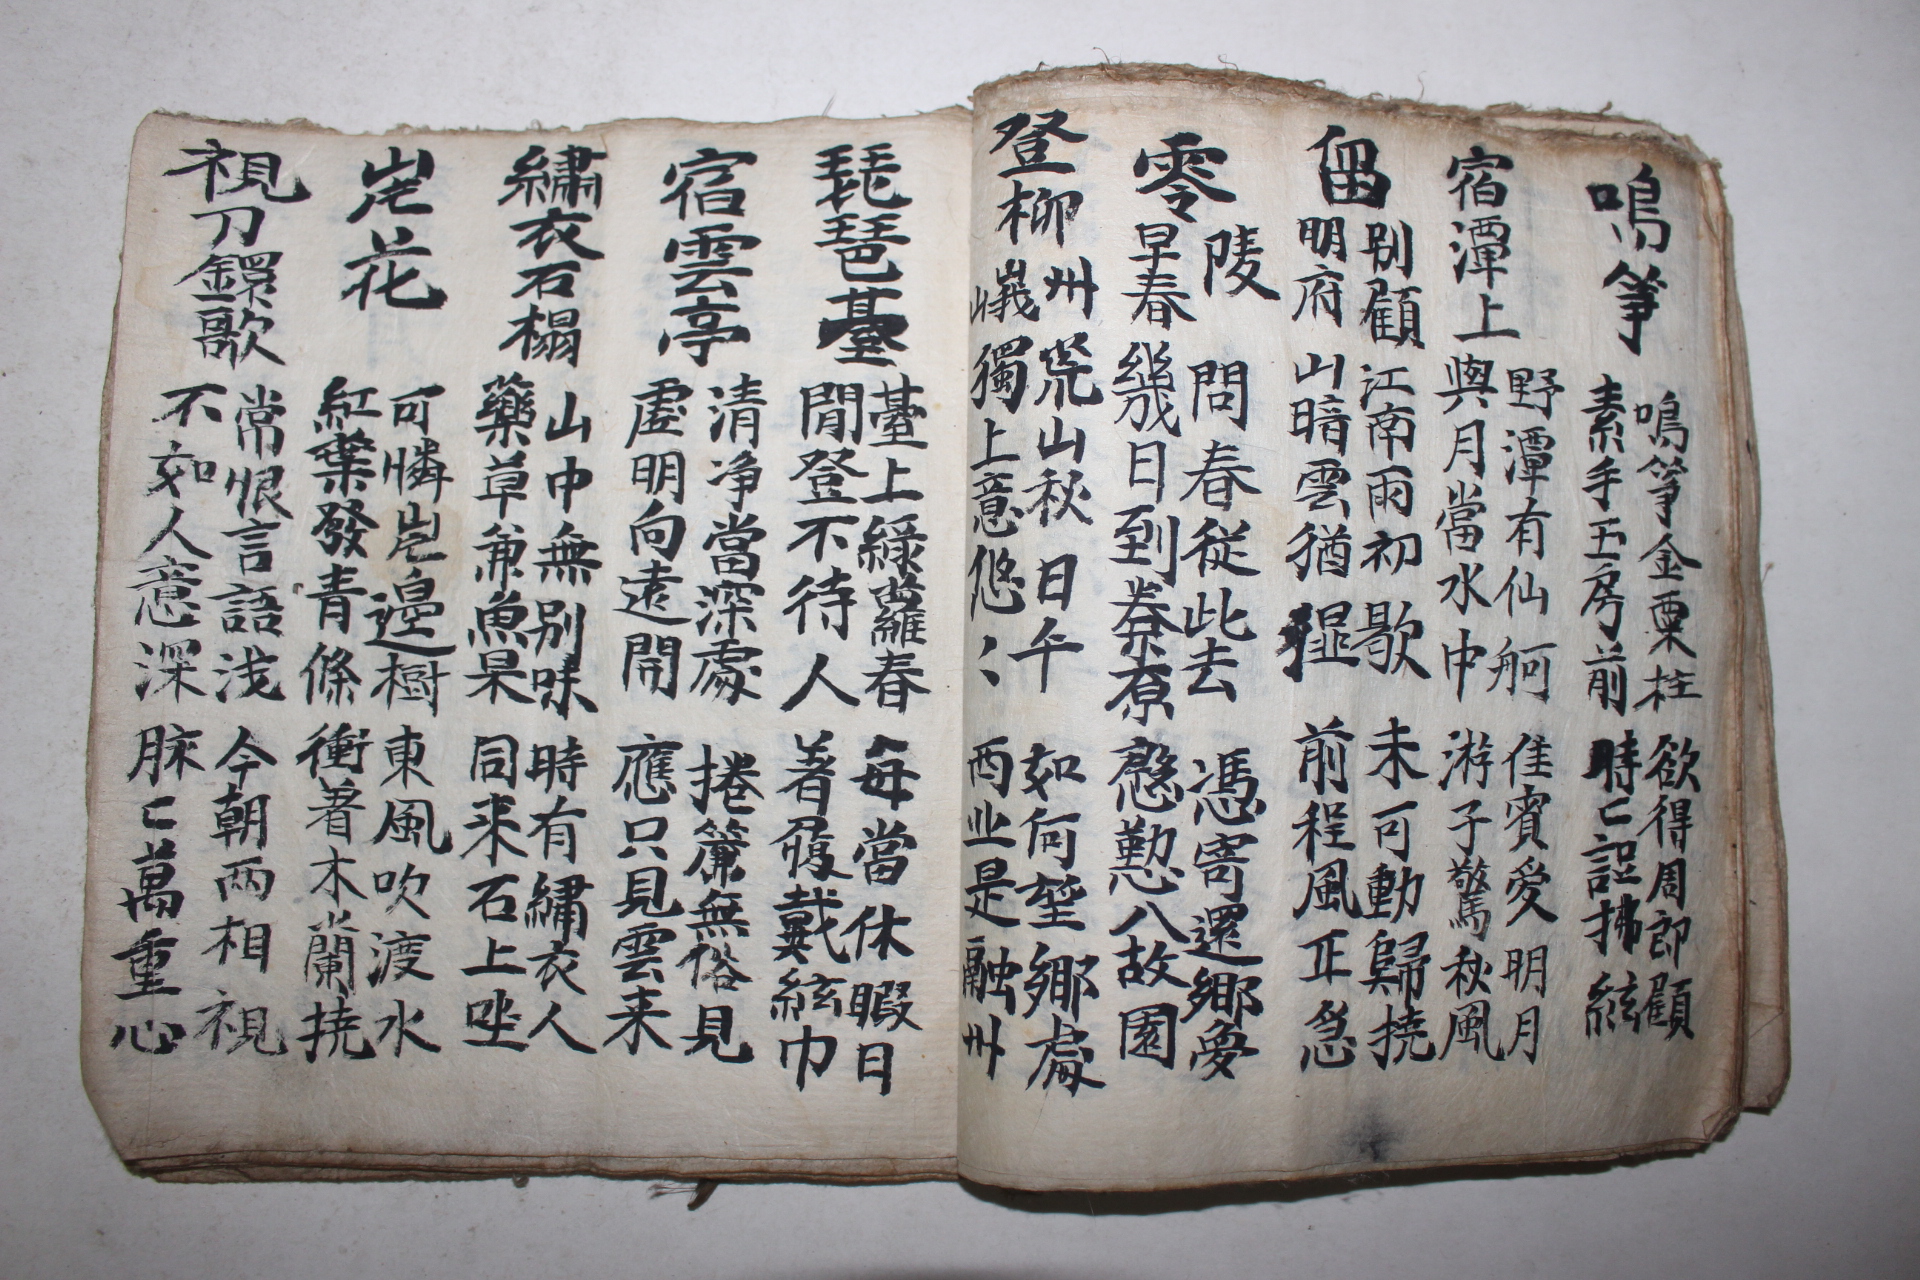 鳴箏
鳴箏金粟柱 欲得周郎顧
素手玉房前 時〻誤拂絃
宿潭上
野潭有仙舸 佳賓愛明月
與月當水中 游子驚秋風
留別顧明府
江南雨初歇 未可動歸撓
山暗雲猶濕 前程風正急
零陵早春
問春從此去 憑寄還鄉夢
幾日到秦原 慇懃入故園
登柳州峨
荒山秋日午 如何望鄉處
獨上意悠〻 西北是融州
琵琶臺
臺上綠蘿春 每當休暇日
閒登不待人 著履戴絃巾
宿雲亭
清净當深處 捲簾無俗見
虛明向遠開 應只見雲来
繡衣石榻
山中無別味 時有繡衣人
藥草兼魚果 同来石上坐
岸花
可憐岸邊樹 東風吹渡水
紅葉發青條 衝著木蘭撓
視刀鐶歌
常恨言語浅 今朝兩相視
不如人意深 脉〻萬重心